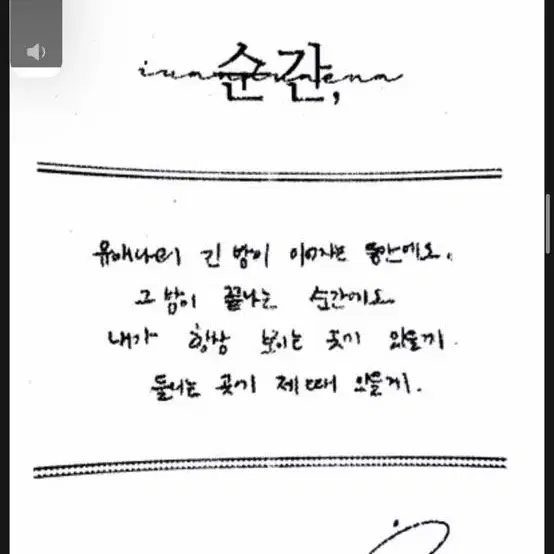 순간,
유애나의 긴 밤이 이어지는 동안에도.
그 밤이 끝나는 순간에도
내가 항상 보이는 곳에 있을게.
들리는 곳에 제때 있을게.